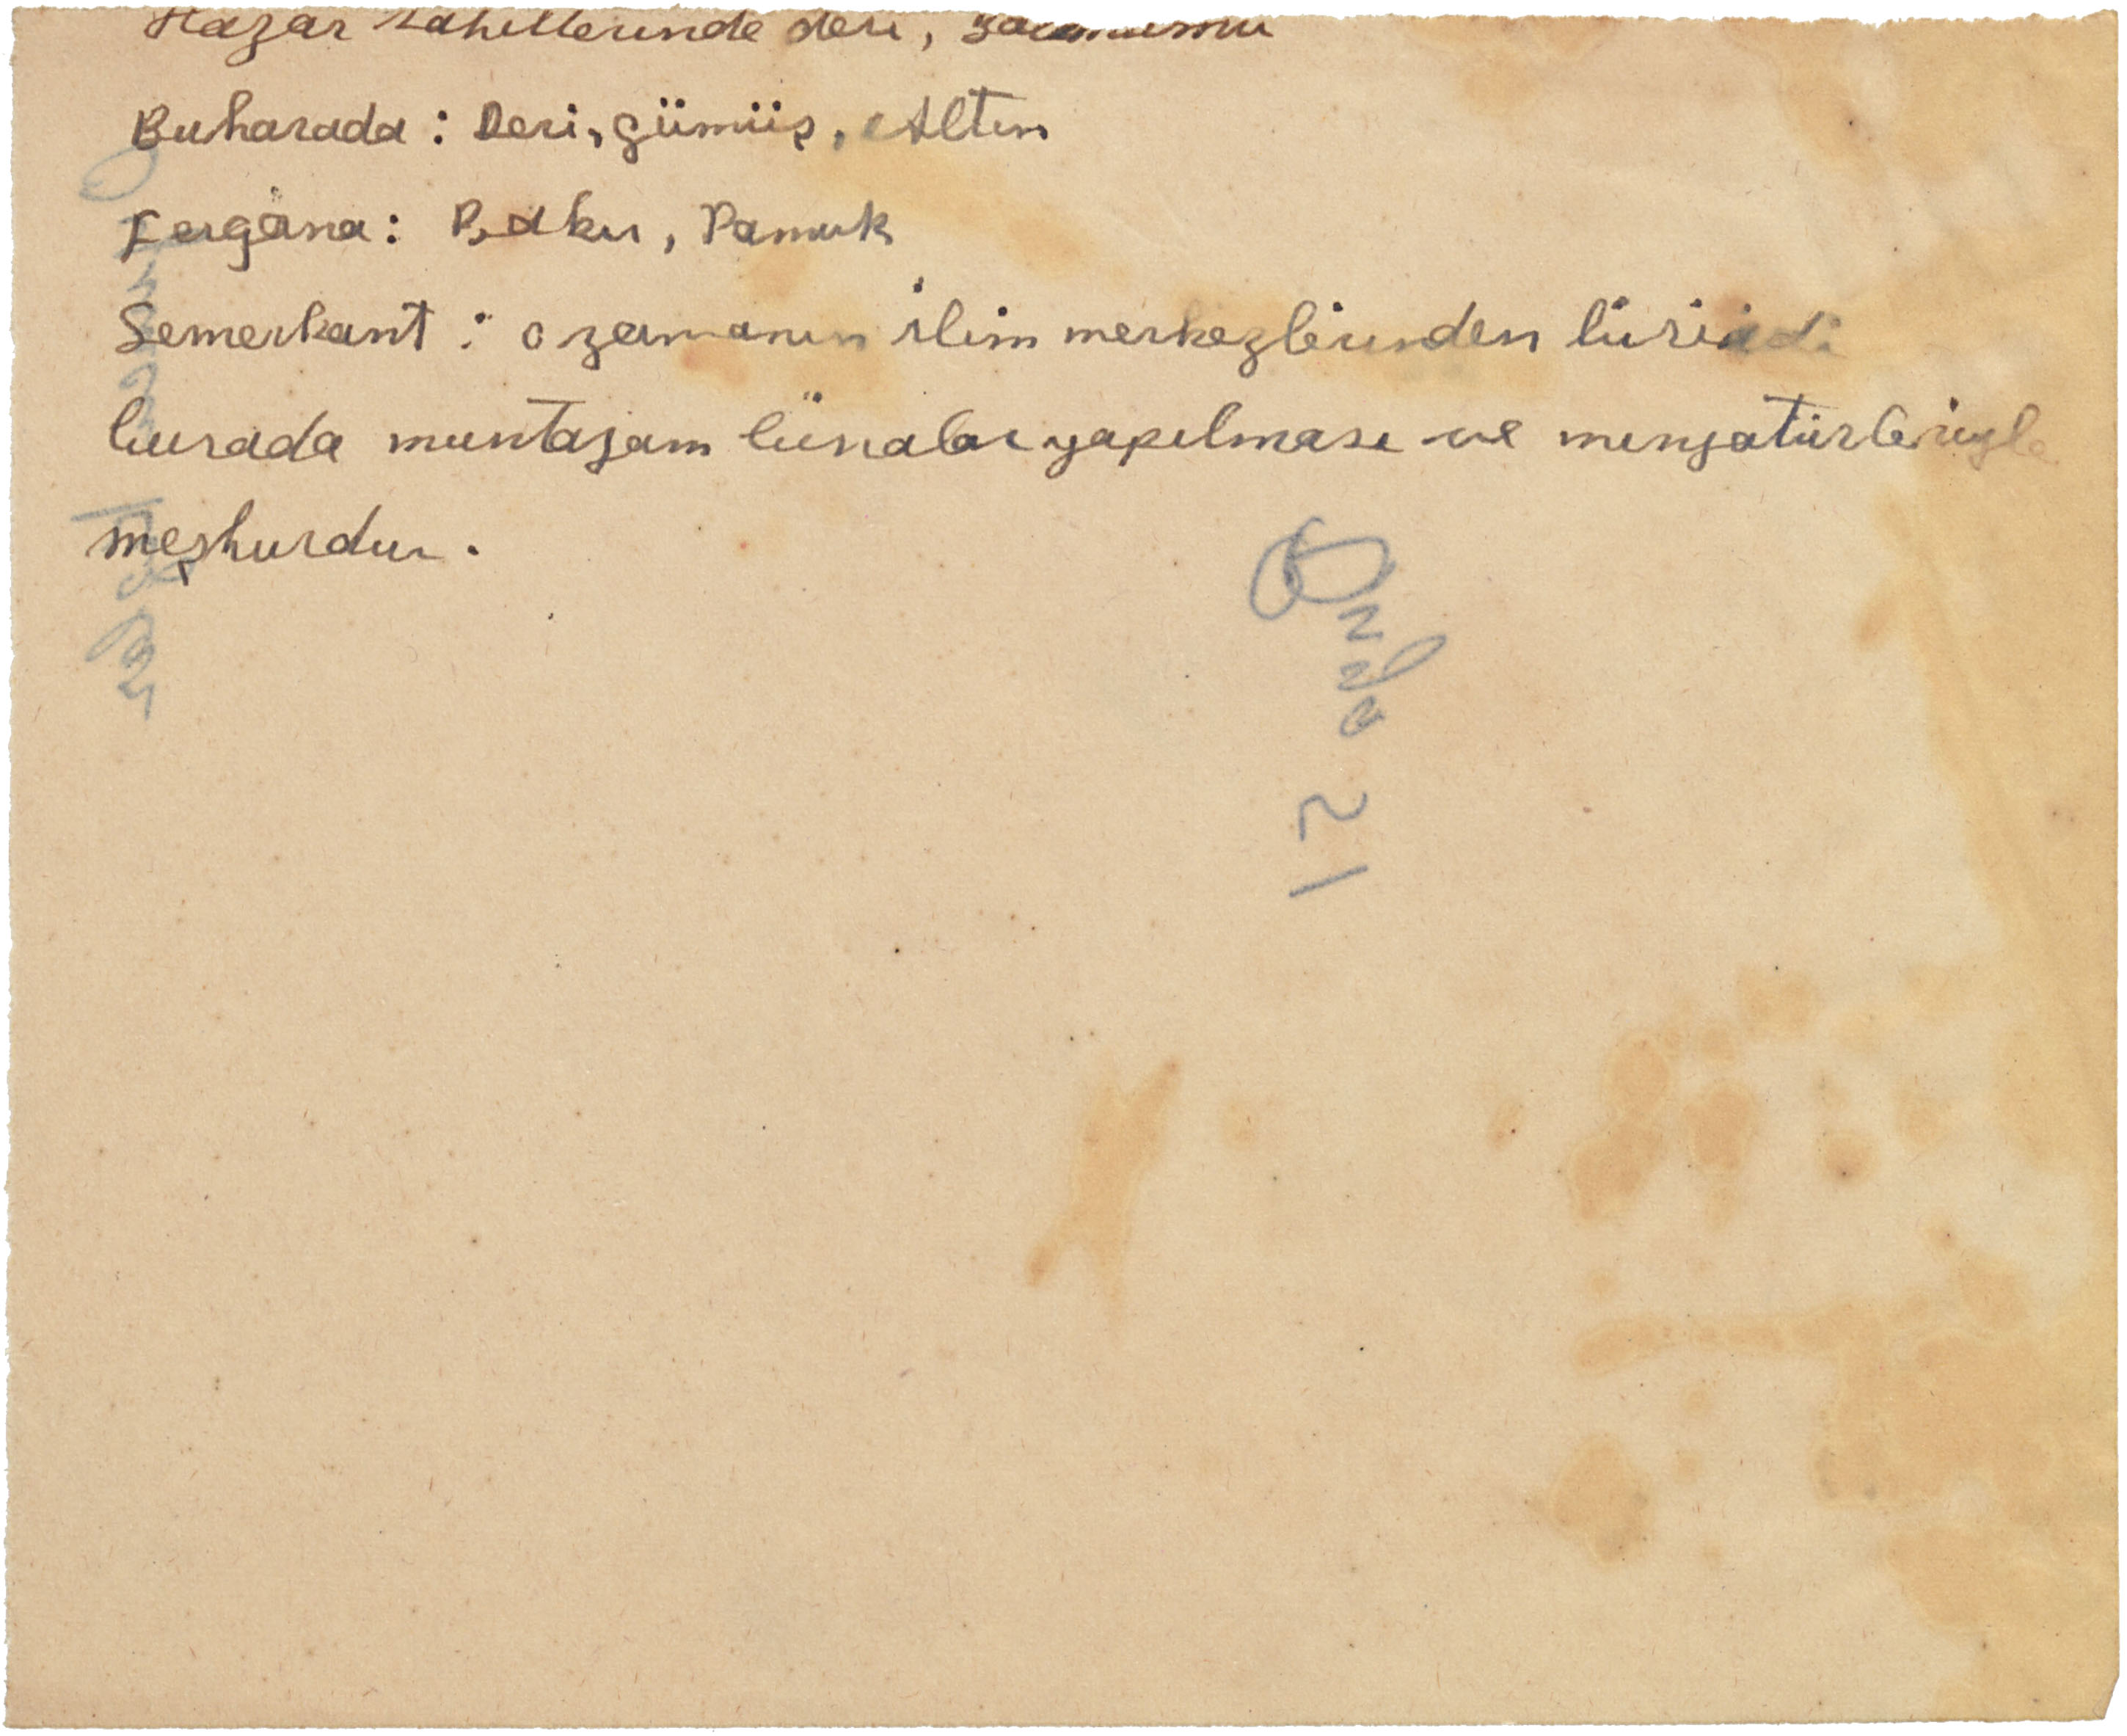 Hazar sahillerinde deri,
Buharada : Deri, gümüş, Altın
Fergana : Bakır, Pamuk
Semerkant : o zamanın ilim merkezlerinden biriidi
burada muntazam binalar yapılması ve minyatürleriyle
meşhurdur.
21